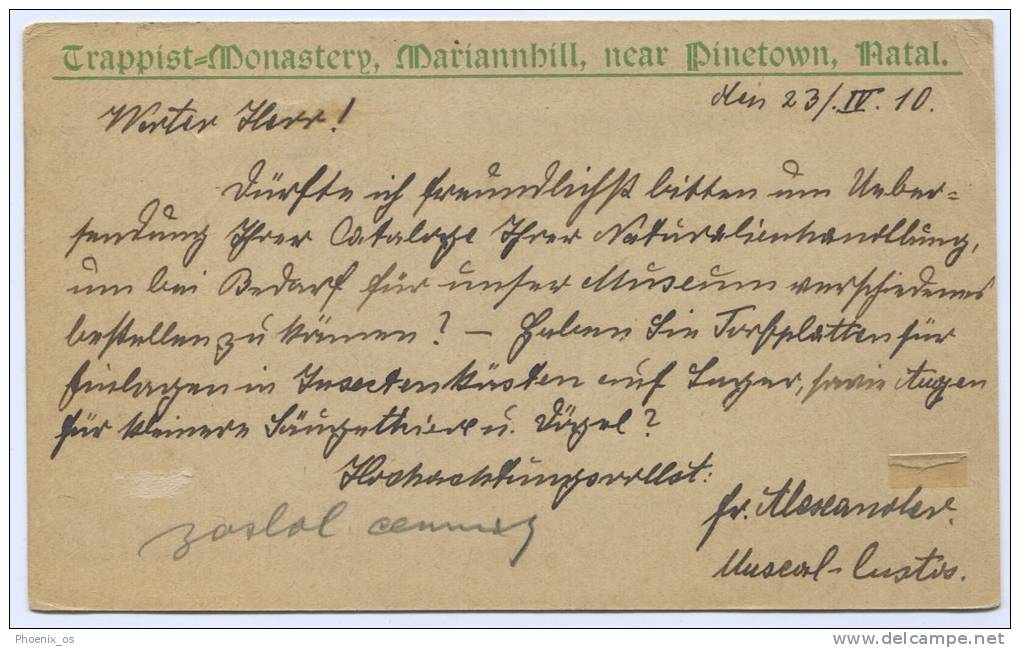 Trappist=Monastery, Mariannhill, near Pinetown, Natal.
den 23/.IV.10.
Werter Herr!
Dürfte ich freundlichst bitten um Ueber=
sendung Ihrer Cataloge Ihrer Naturalienhandlung,
um bei Bedarf für unser Museum verschiedenes
bestellen zu können? — Haben Sie Torfplatten für
Einlagen in Insectenkästen auf Lager, sowie Augen
für kleinere Säugethiere u. Vögel?
Hochachtungsvollst:
fr. Alexander.
zaslal cenník
Museal-Custos.
Phoenix_os
http://www.delcampe.net